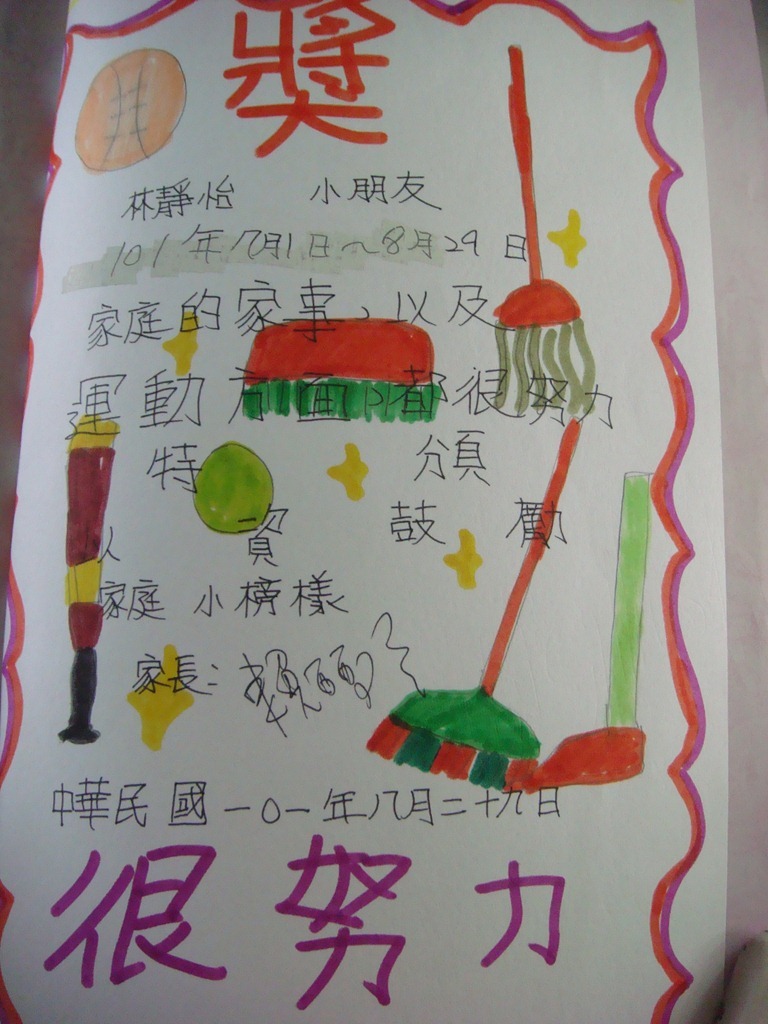 獎
林靜怡 小朋友
101年7月1日~8月29日
家庭的家事,以及
運動方面,都很努力
特 頒
以 資 鼓 勵
家庭 小榜樣
家長:
中華民國一〇一年八月二十九日
很努力